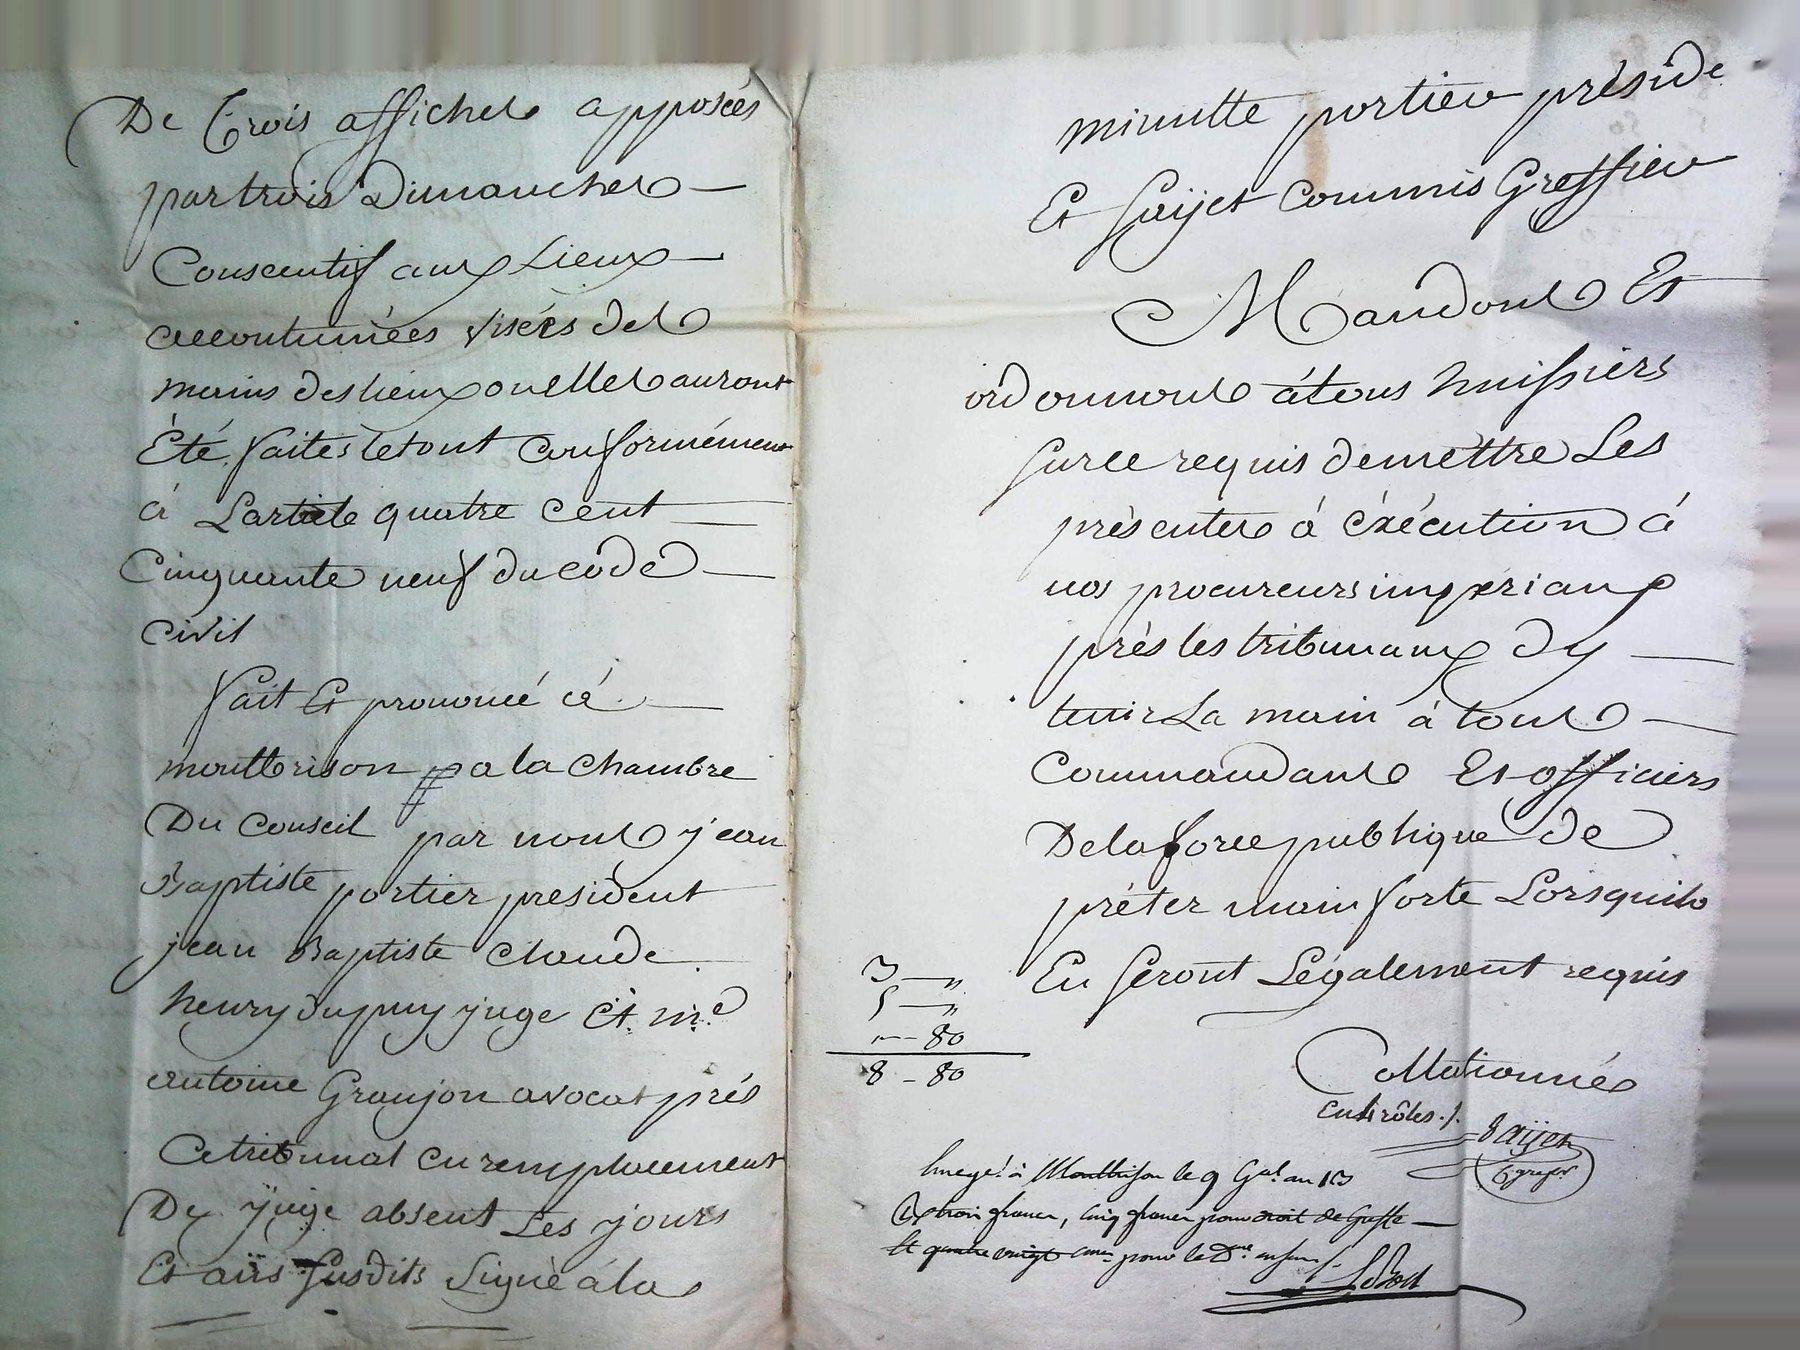 De trois affiches apposées
par trois Dimanches
Consecutif aux Lieux
accoutumées visées des
mains des lieux ou elles auront
Eté faites letout conformément
à Larticle quatre cent
Cinquante neuf du code
Civil
fait Et prononcé à
montbrison a la Chambre
Du Conseil par nous jean
Baptiste portier president
jean Baptiste claude
henry dupuy juge Et me
antoine Granjon avocat prés
Ce tribunal en remplacement
De juge absent Les jours
Et ans susdits Signé à la
minutte portier préside
Et faÿet Commis Greffier
Mandons Et
ordonnons à tous huissiers
sur ce requis de mettre Les
présentes à éxécution à
nos procureurs impériaux
près les tribunaux dy
tenir La main à tous
Commandants Et officiers
De la force publique de
prêter main forte Lorsquils
En seront Légalement requis
3 — „
5 — „
— 80
8 - 80
Collationnée
faÿet
Cgrefr
à Montbrison le 9 Gal. an 13
trois francs, cinq francs pour droit de Greffe
Et quatre vingt pour le